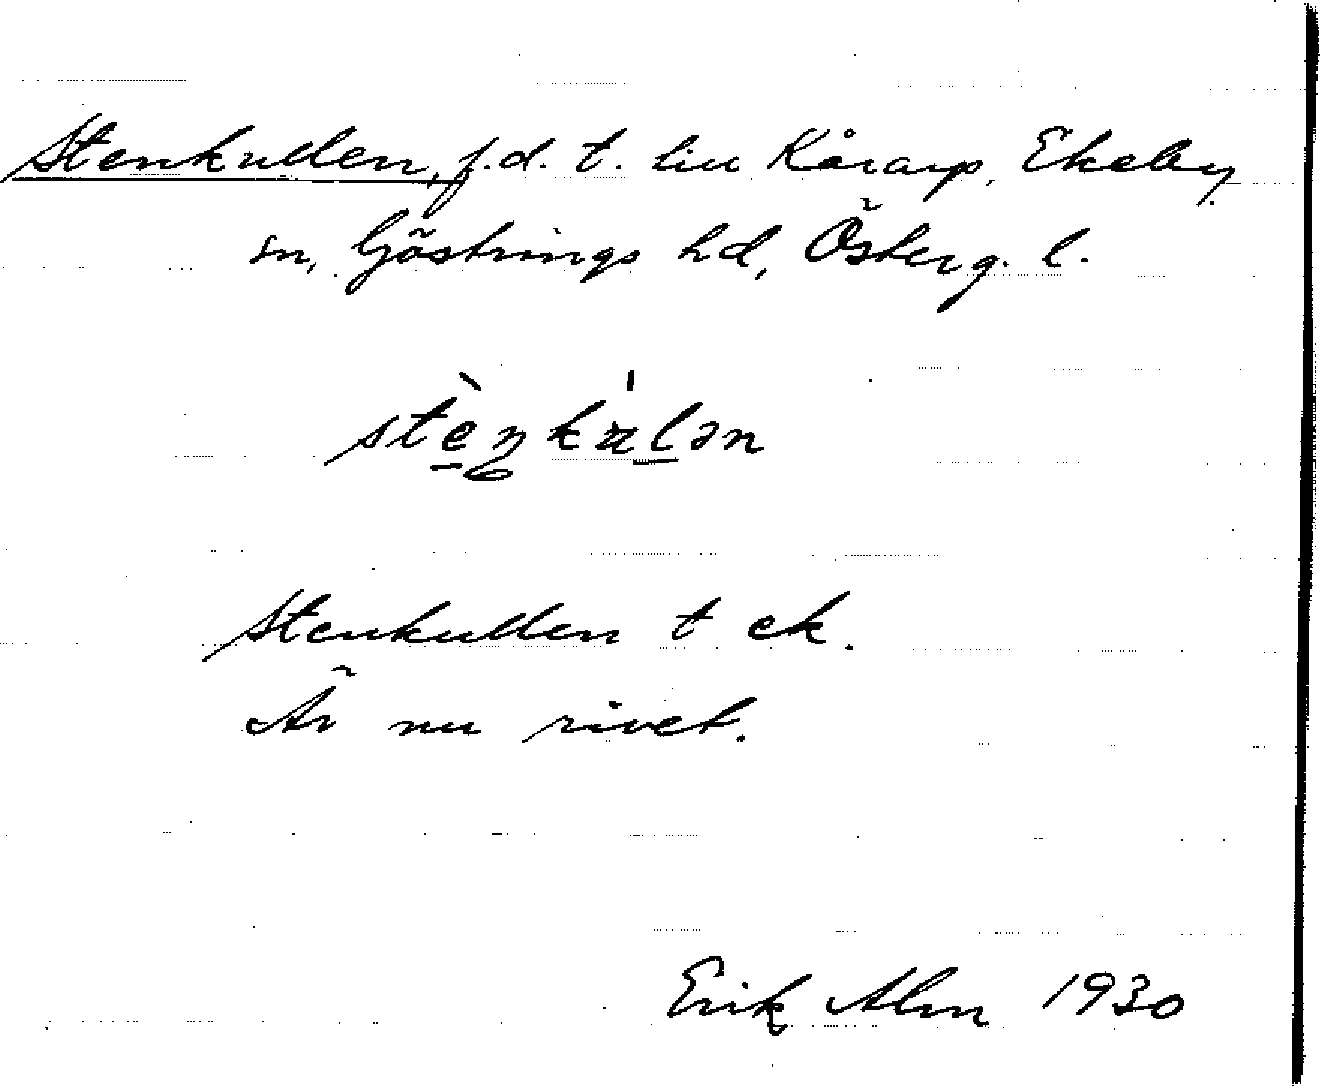 Stenkullen, f.d. t. till Kårarp, Ekeby
sn, Göstrings hd, Österg. l.
Stenkullen t ek.
Är nu rivet.
Erik Alm 1930